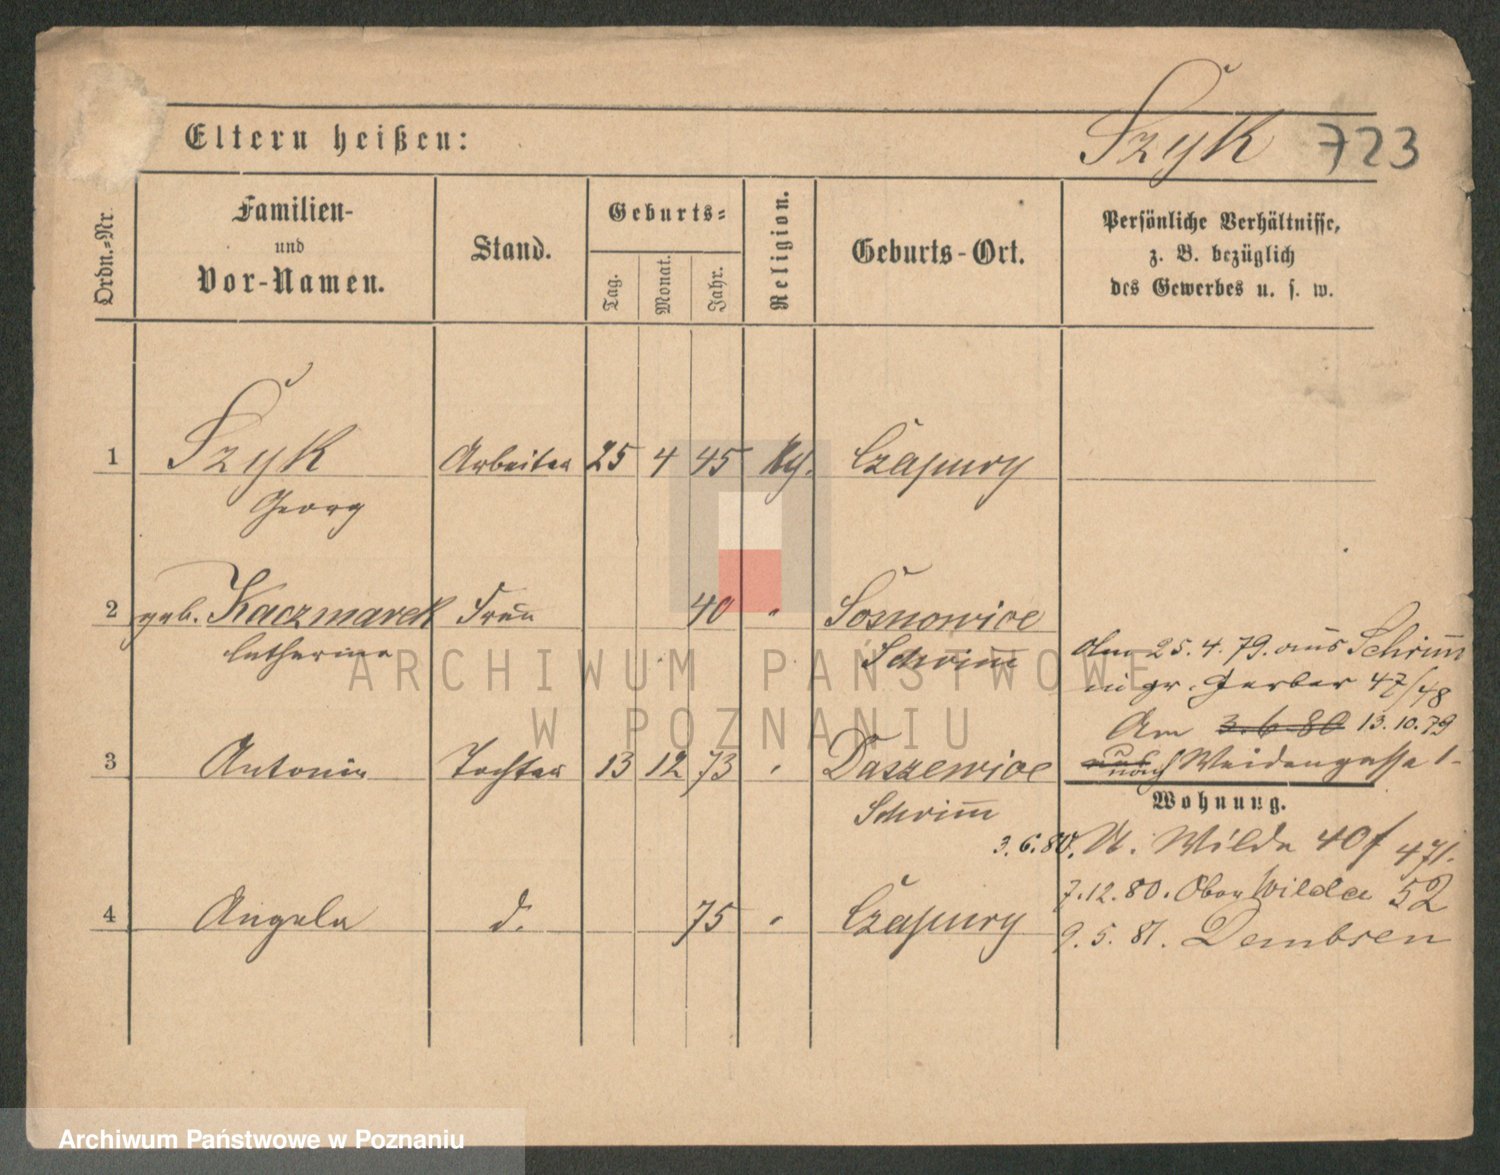 Eltern heißen: Szyk 723
Ordn.-Nr.
Familien-
und
Vor-Namen.
Stand.
Geburts-
Tag.
Monat.
Jahr.
Religion.
Geburts-Ort.
Persönliche Verhältnisse,
z. B. bezüglich
des Gewerbes u. s. w.
1 Szyk Arbeiter 25 4 45 Czapury
Georg
2 geb. Kaczmarek Frau 40 " Sosnowice
Catharina Schrim̄
Am 25.4.79. aus Schrim̄
in gr. Gerber 47/48
Am 3.6.80 13.10.79
3 Antonie Tochter 13 12 73 " Daszewice
nach Weidengasse 1
Schrim̄
Wohnung.
3.6.80. U. Wilda 40f 471.
7.12.80. Ober Wilda 52
4 Angela d. 75 " Czapury
9.5.81. Dembsen
ARCHIWUM PAŃSTWOWE
W POZNANIU
Archiwum Państwowe w Poznaniu